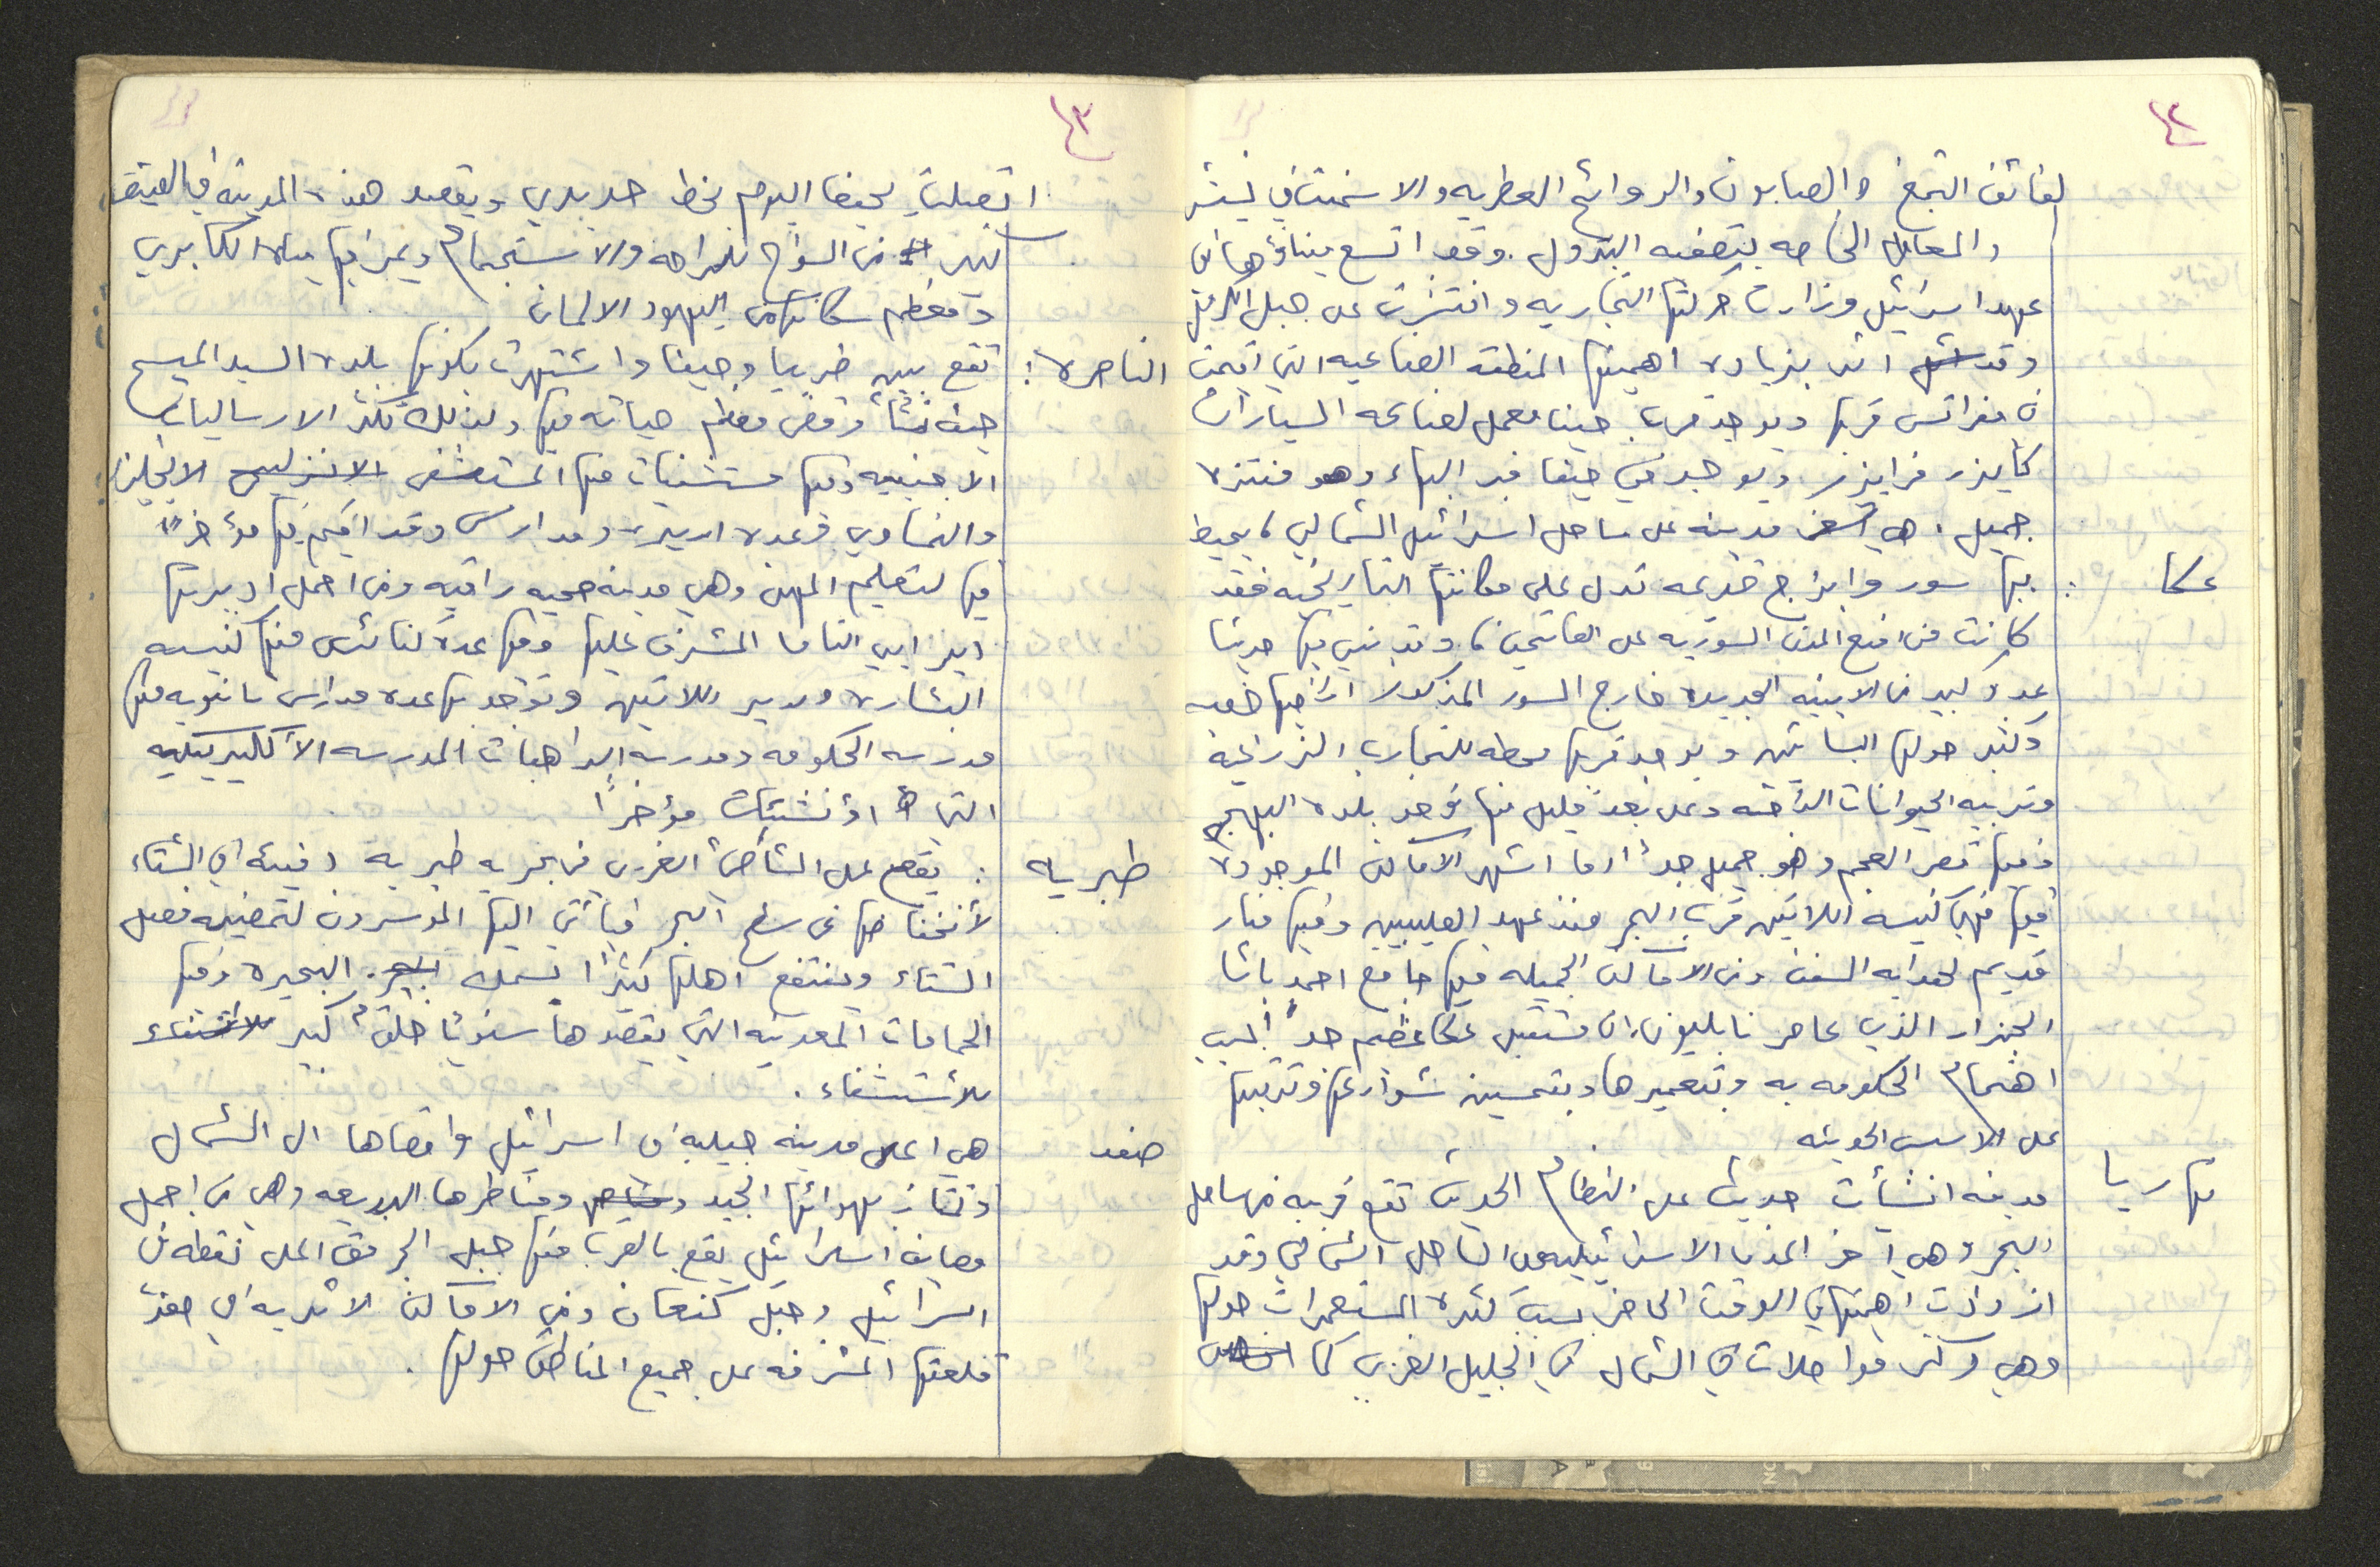 ٤٢
لفائف التبغ والصابون والروائح العطريه والاسمنت في نيشر
والمعامل الخاصه بتصفيه البترول. وقد اتسع ميناؤها في
عهد اسرائيل وزادت حركتها التجاريه وانتشرت على جبل الكرمل
وقد اثر بزياده اهميتها المنطقه الصناعيه التي اقيمت
في مفراتس قربها ويوجد قرب حيفا معمل لصناعه السيارات
كايزر فرايزر ويوجد في حيفا قبر البهاء وهو منتزه
جميل.
عكا : هي مدينه على ساحل اسرائيل الشمالي، يحيط
بها سور وابراج قديمه تدل على مكانتها التاريخيه فقد
كانت من امنع المدن السوريه على الفاتحين، وقد بني فيها حديثا
عدد كبير من الابنيه الجديده خارج السور المذكور اراضيها خصبه
وتكثر حولها البساتين ويوجد قربها محطه للتجارب الزراعية
وتربيه الحيوانات الداجنه وعلى بعد قليل منها توجد بلده البهجه
وفيها قصر العجم وهو جميل جداً اما اشهر الاماكن الموجوده
فيها فهي كنيسه اللاتين قرب البحر منذ عهد الصليبيين وفيها منار
قديم لهدايه السفن ومن الاماكن الجميله فيها جامع احمد باشا
الجزار الذي عاصر نابليون. ان مستقبل عكا عظيم جداً لسبب
اهتمام الحكومه به وبتعميرها وبتحسين شوارعها وترتيبها
على الاسس الحديثه
نهاريا مدينه انشأت حديثا على النظام الحديث تقع قريبه من ساحل
البحر وهي آخر المدن الاسرائيليه على الساحل الشمالي وقد
ازدادت اهميتها في الوقت الحاضر بسبب كثره المستعمرات حولها
وهي مركز مواصلات في الشمال في الجليل الغربي كما
٤٣
اتصلت بحيفا اليوم بخط حديدي ويقصد هذه المدينه في الصيف
كثير من السواح للراحه والاستجمام ويمر فيها مياه الكابري
ومعظم سكانها من اليهود الالمان
الناصره : تقع بين طبريا وحيفا واشتهرت بكونها بلده السيد المسيح
حيث نشأ وقضى معظم حياته فيها ولذلك تكثر الارساليات
الاجنبيه وفيها مستشفيات منها المستشفى الانجليزي
والنمساوي وعده اديره ومدارس وقد اقيم فيها مؤخراً
فيها لتعليم المهن وهي مدينه صحيه راقيه ومن اجمل اديرتها
دير ابي اليتامى المشرف عليها وفيها عدة كنائس منها كنيسه
البشاره ودير اللاتين وتوجد بها عده مدارس ثانويه منها
مدرسه الحكومه ومدرسه الراهبات المدرسه الاكليريكيه
التي انشئت مؤخراً
طبريه : يقع على الشاطئ الغربي من بحريه طبريه دفيئه في الشتاء
لأنخفاضها عن سطح البحر فيأتي اليها الموسرون لتمضيه فصل
الشتاء وينتفع اهلها كثيراً بسمك البحيره وفيها
الحمامات المعدنيه التي يقصدها سنوياً خلق كبير
للاستشفاء.
صفد هي اعلى مدينه جبليه في اسرائيل واقصاها الى الشمال
وتمتاز بهوائها الجيد ومناظرها البديعه وهي من اجمل
مصايف اسرائيل يقع بالقرب منها جبل الجرمق اعلى نقطه في
اسرائيل وجبل كنعان ومن الاماكن الاثريه في صفد
قلعتها المشرفه على جميع المناطق حولها.